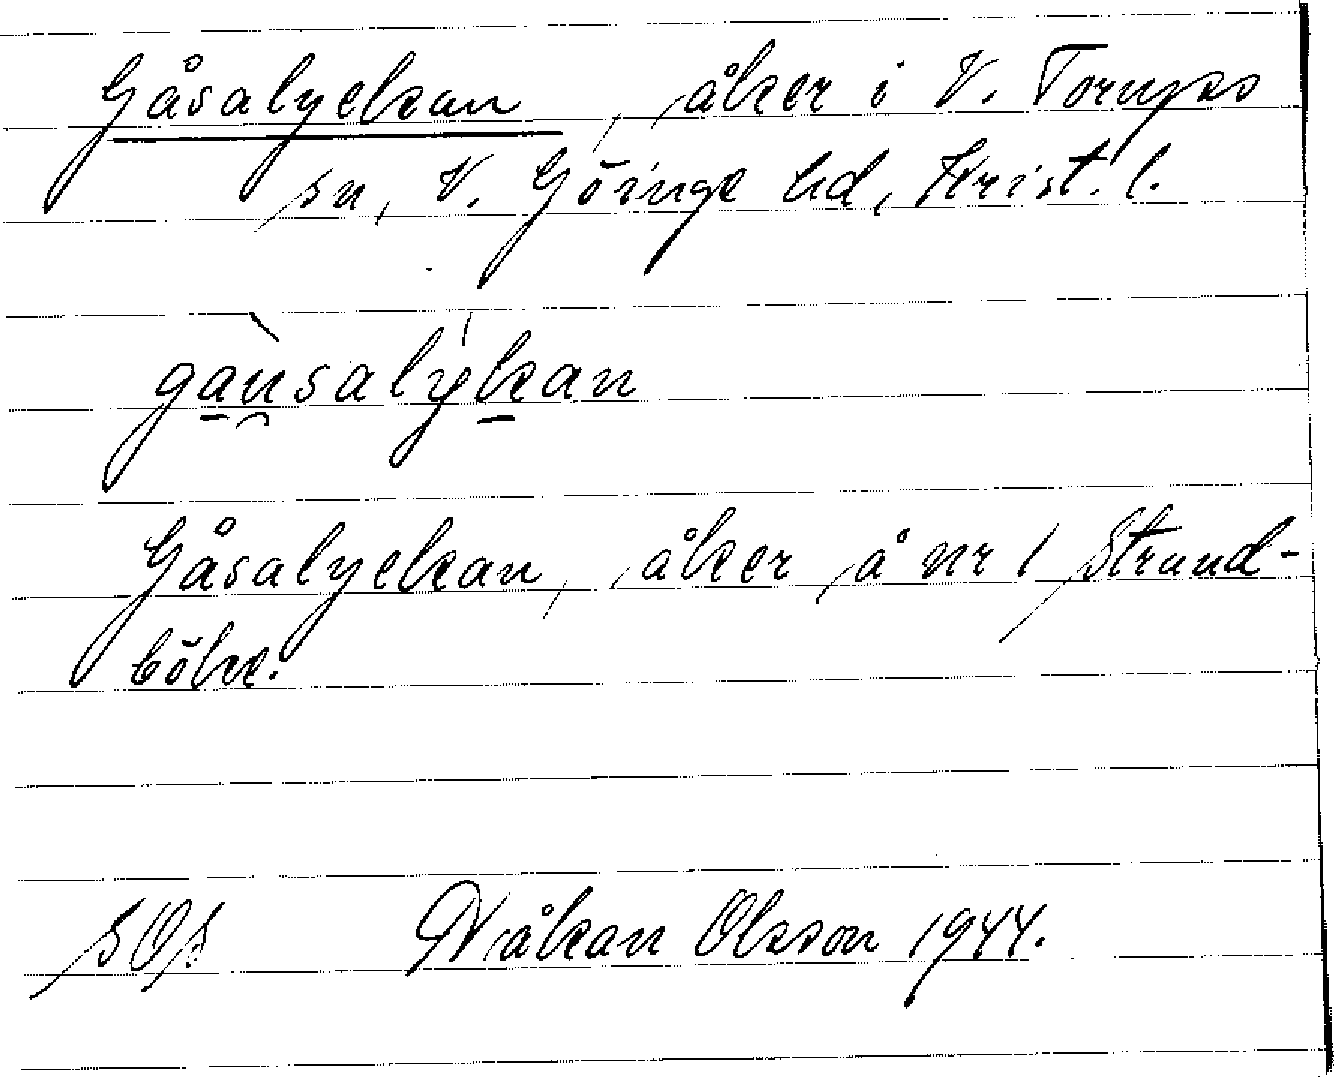 Gåsalyckan, åker i V. Torups
sn, V. Göinge hd, Krist. l.
gàu̯salýkan
Gåsalyckan, åker å nr 1 Strand-
böke.
Håkan Olsson 1944.